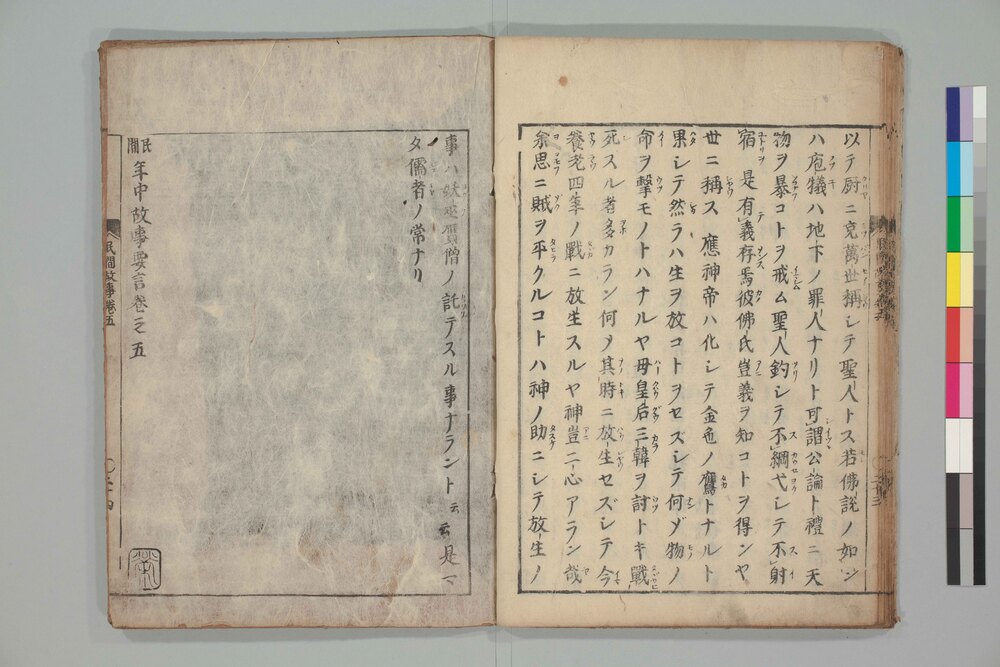 以テ厨ニ充萬世稱シテ聖人トス若佛説ノ如ンハ庖犧ハ地下ノ罪人ナリト可謂公論ト禮ニ天
物ヲ暴コトヲ戒ム聖人釣シテ不綱弋シテ不射
宿是有義存焉彼佛氏豈義ヲ知コトヲ得ンヤ
世ニ稱ス應神帝ハ化シテ金色ノ鷹トナルト
果シテ然ラハ生ヲ放コトヲセズシテ何ゾ物ノ
命ヲ撃モノトハナルヤ母皇后三韓ヲ討トキ戰
死スル者多カラン何メ其時ニ放生セズシテ今
養老四年ノ戰ニ放生スルヤ神豈二心アラン哉
衆思ニ賊ヲ平クルコトハ神ノ助ニシテ放生ノ
事ハ妖巫賈僧ノ託テスル事ナラント云云是マ
タ儒者ノ常ナリ
民間年中故事要言卷之五
民間故事卷五